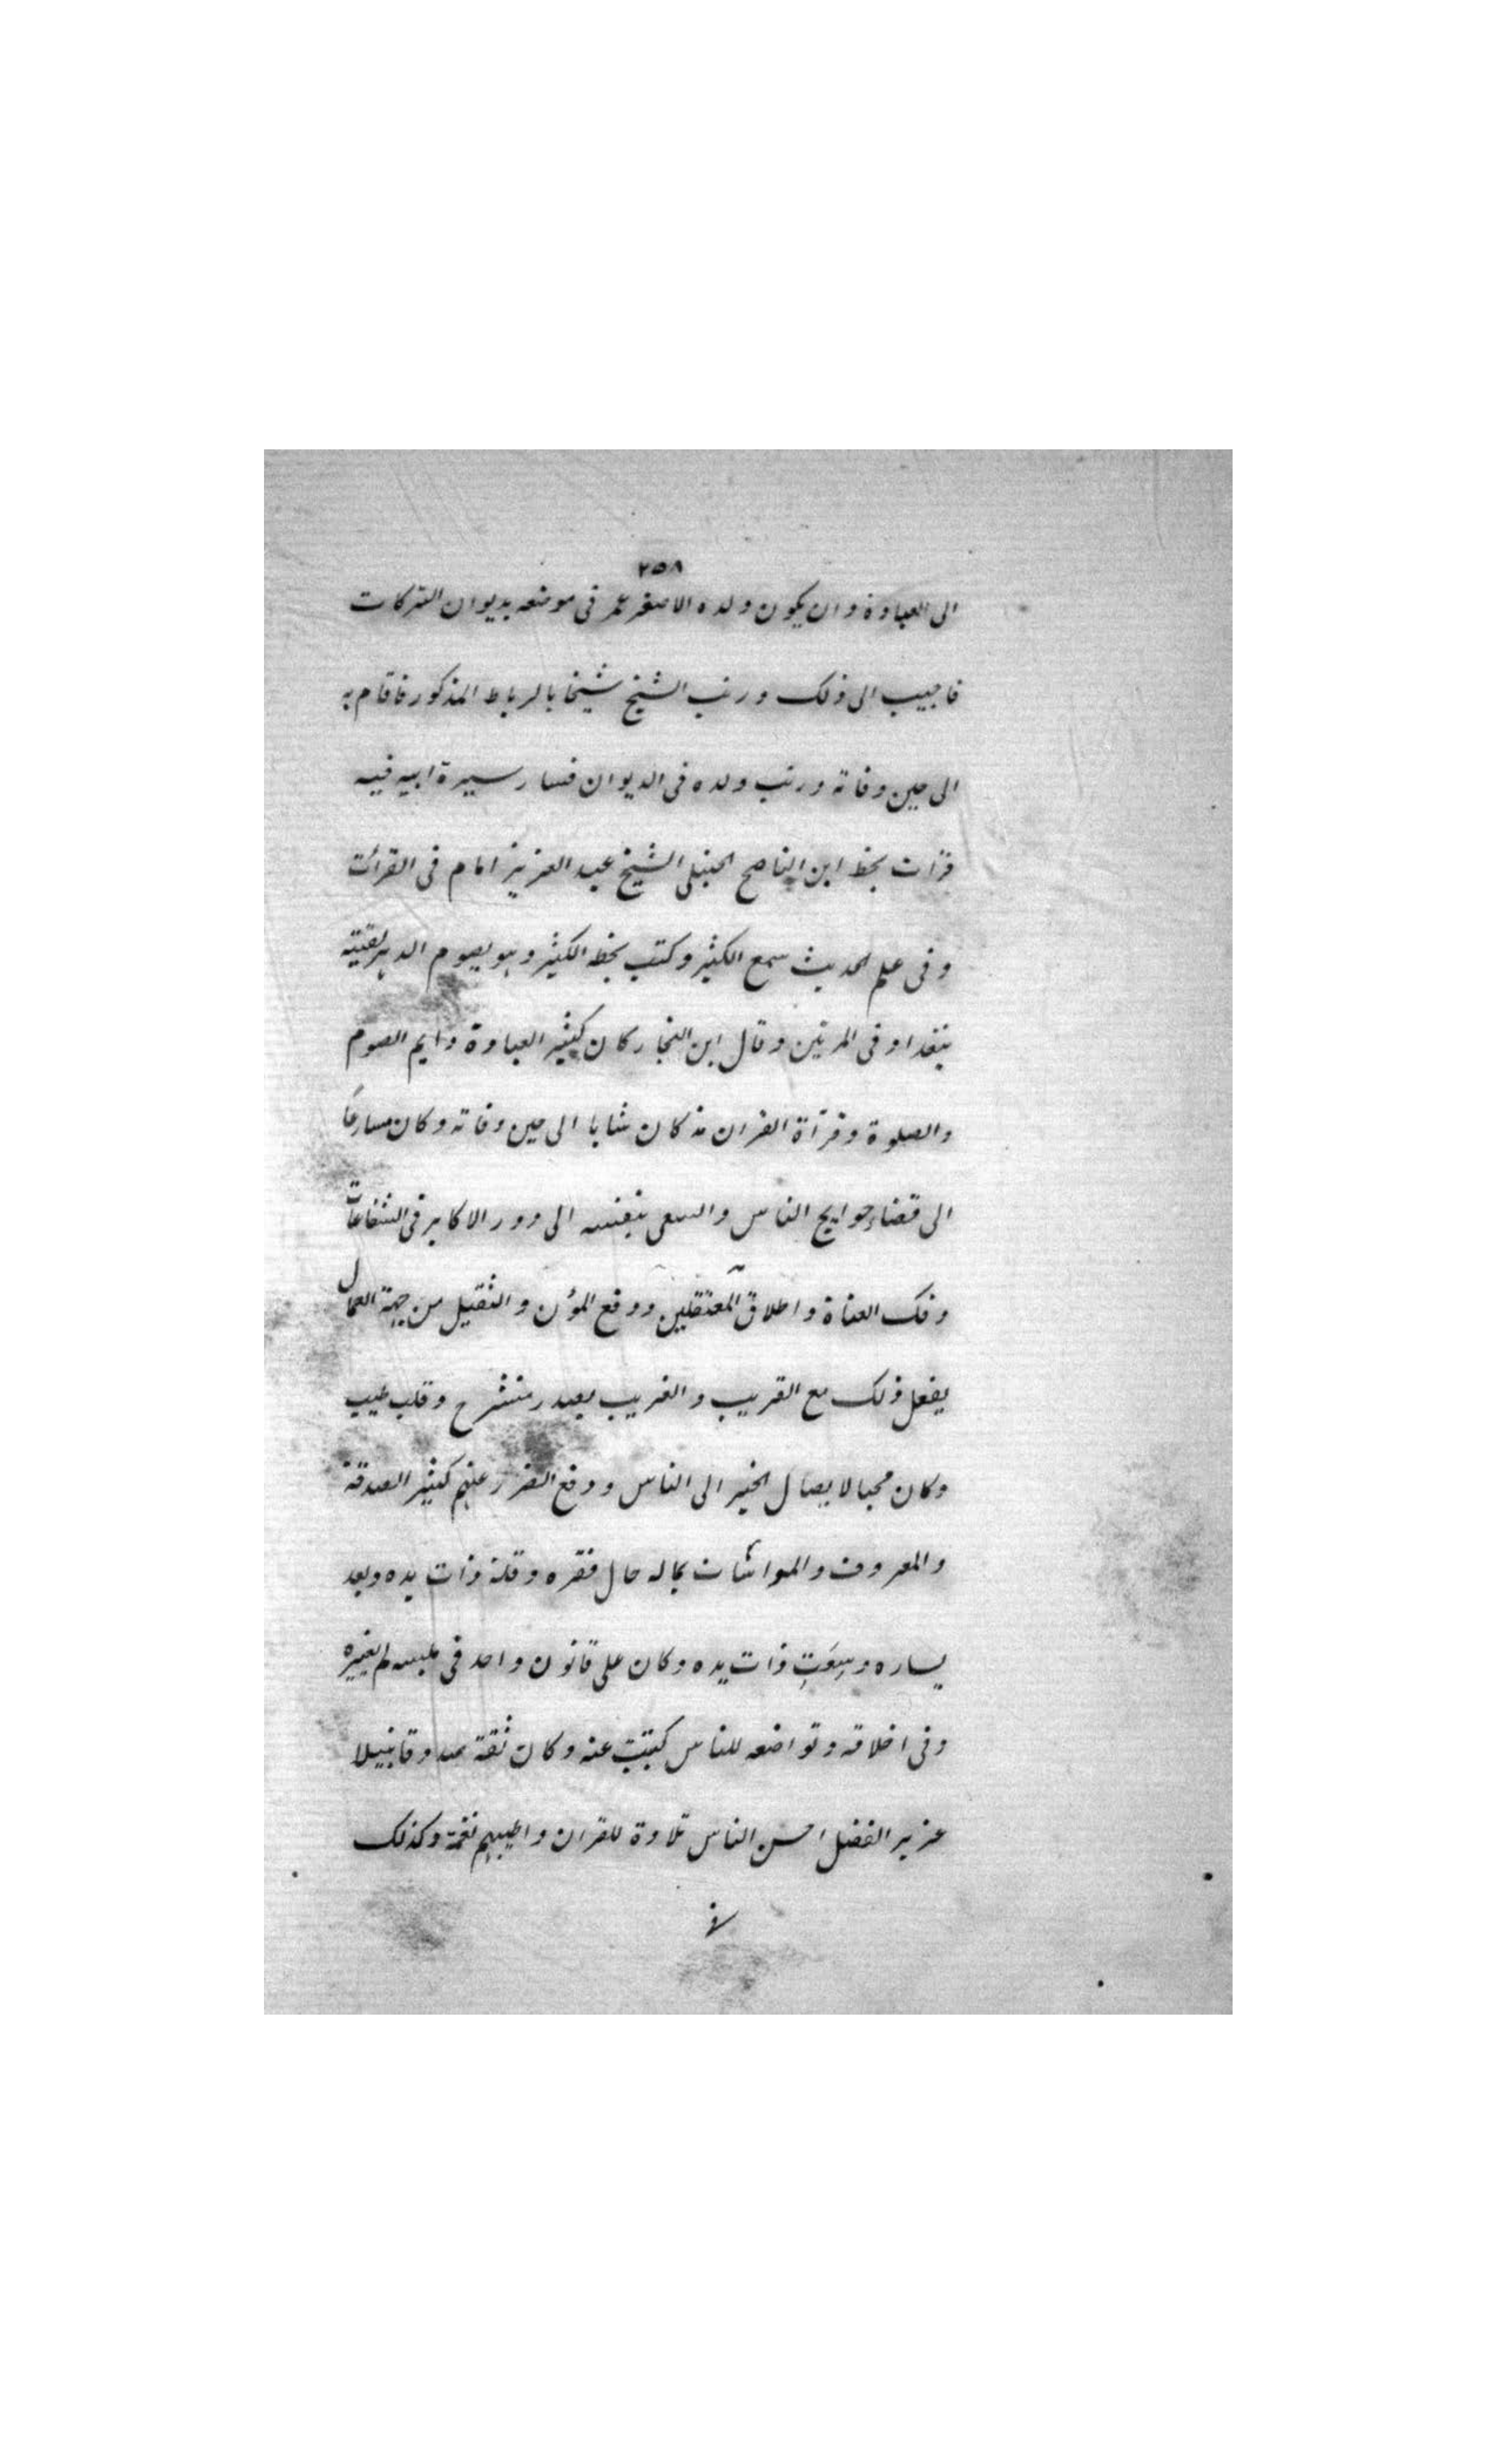 ٢٥٨
الى العبادة وان يكون ولده الاصغر عمر فى موضعه بديوان التركات
فاجيب الى ذلك ورتب الشيخ شيخا بالرباط المذكور فاقام به
الى حين وفاته ورتب ولده فى الديوان فسار سيرة ابيه فيه
قرأت بخط ابن الناصح الحنبلى الشيخ عبد العزيز امام فى القرائت
وفى علم الحديث سمع الكثير وكتب بخط الكثير وهو يصوم الدهر لقيته
ببغداد فى المرتين وقال ابن النجار كان كثير العبادة دايم الصوم
والصلوة وقرأة القران مذ كان شابا الى حين وفاته وكان مسارعًا
الى قضاء حوايج الناس والسعى بنفسه الى دور الاكابر فى الشفاعات
وفك العناة واطلاق المعتقلين ودفع المؤن والثقيل من جهة العمال
يفعل ذلك مع القريب والغريب بصدر منشرح وقلب طيب
وكان محبا لايصال الخير الى الناس ودفع الضرر عنهم كثير الصدقة
والمعروف والمواسات بماله حال فقره وقلة ذات يده وبعد
يساره وسِعَتِ ذات يده وكان على قانون واحد فى ملبسه لم يغيره
وفى اخلاقه وتواضعه للناس كتبت عنه وكان ثقة صدوقا نبيلا
عزير الفضل احسن الناس تلاوة للقران واطيبهم نغمة وكذلك
فى